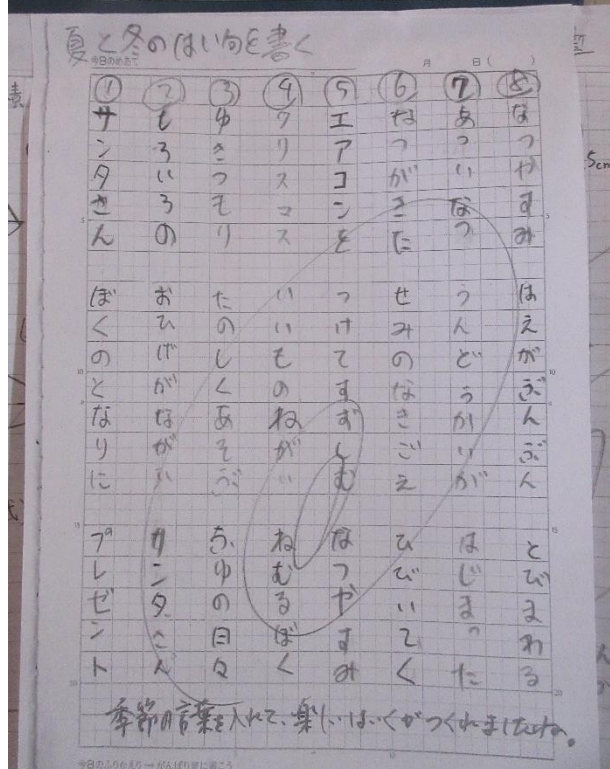 夏と冬のはい句を書く
今日のめあて
月 日( )
① サンタさん ぼくのとなりに プレゼント
② しろいろの おひげがながい サンタさん
③ ゆきつもり たのしくあそぶ ふゆの日々
④ クリスマス いいものねがい ねむるぼく
⑤ エアコンを つけてすずしむ なつやすみ
⑥ なつがきた せみのなきごえ ひびいてく
⑦ あついなつ うんどうかいが はじまった
⑧ なつやすみ はえがぶんぶん とびまわる
季節の言葉を入れて、楽しいはいくがつくれましたね。
5cm